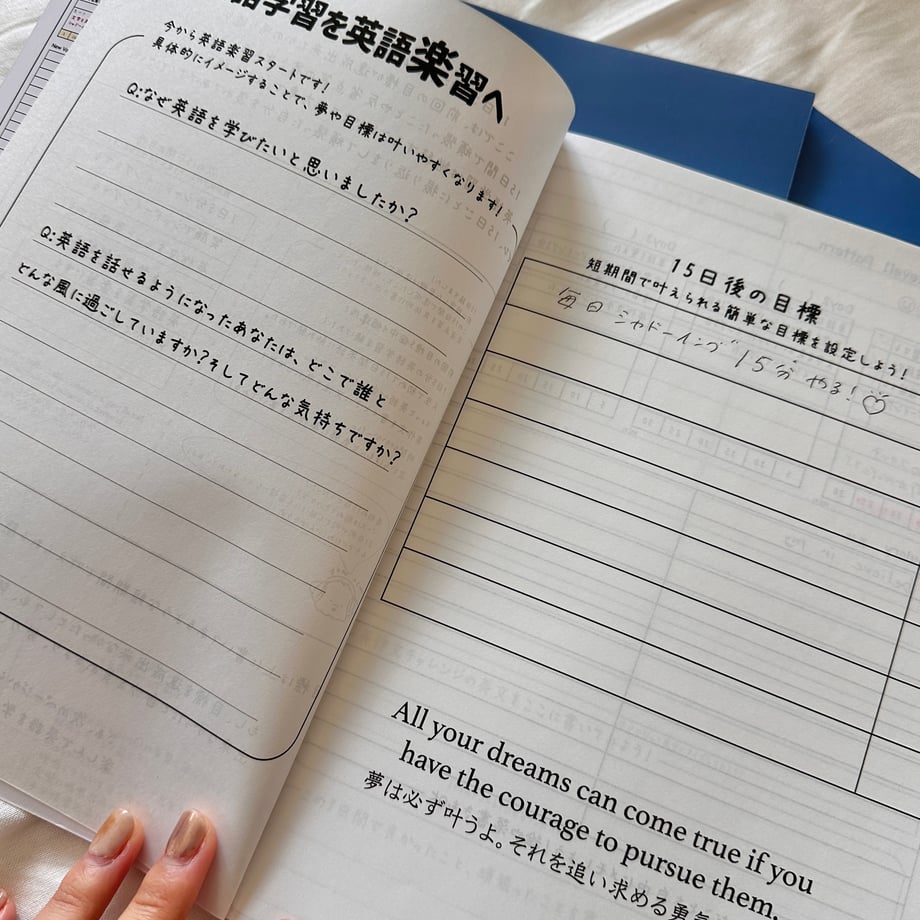 語学習を英語楽習へ
今から英語楽習スタートです!
具体的にイメージすることで、夢や目標は叶いやすくなります!
Q:なぜ英語を学びたいと思いましたか?
Q:英語を話せるようになったあなたは、どこで誰と
どんな風に過ごしていますか?そしてどんな気持ちですか?
15日後の目標
短期間で叶えられる簡単な目標を設定しよう!
毎日シャドーイング15分やる!
All your dreams can come true if you
have the courage to pursue them.
夢は必ず叶うよ。それを追い求める勇気